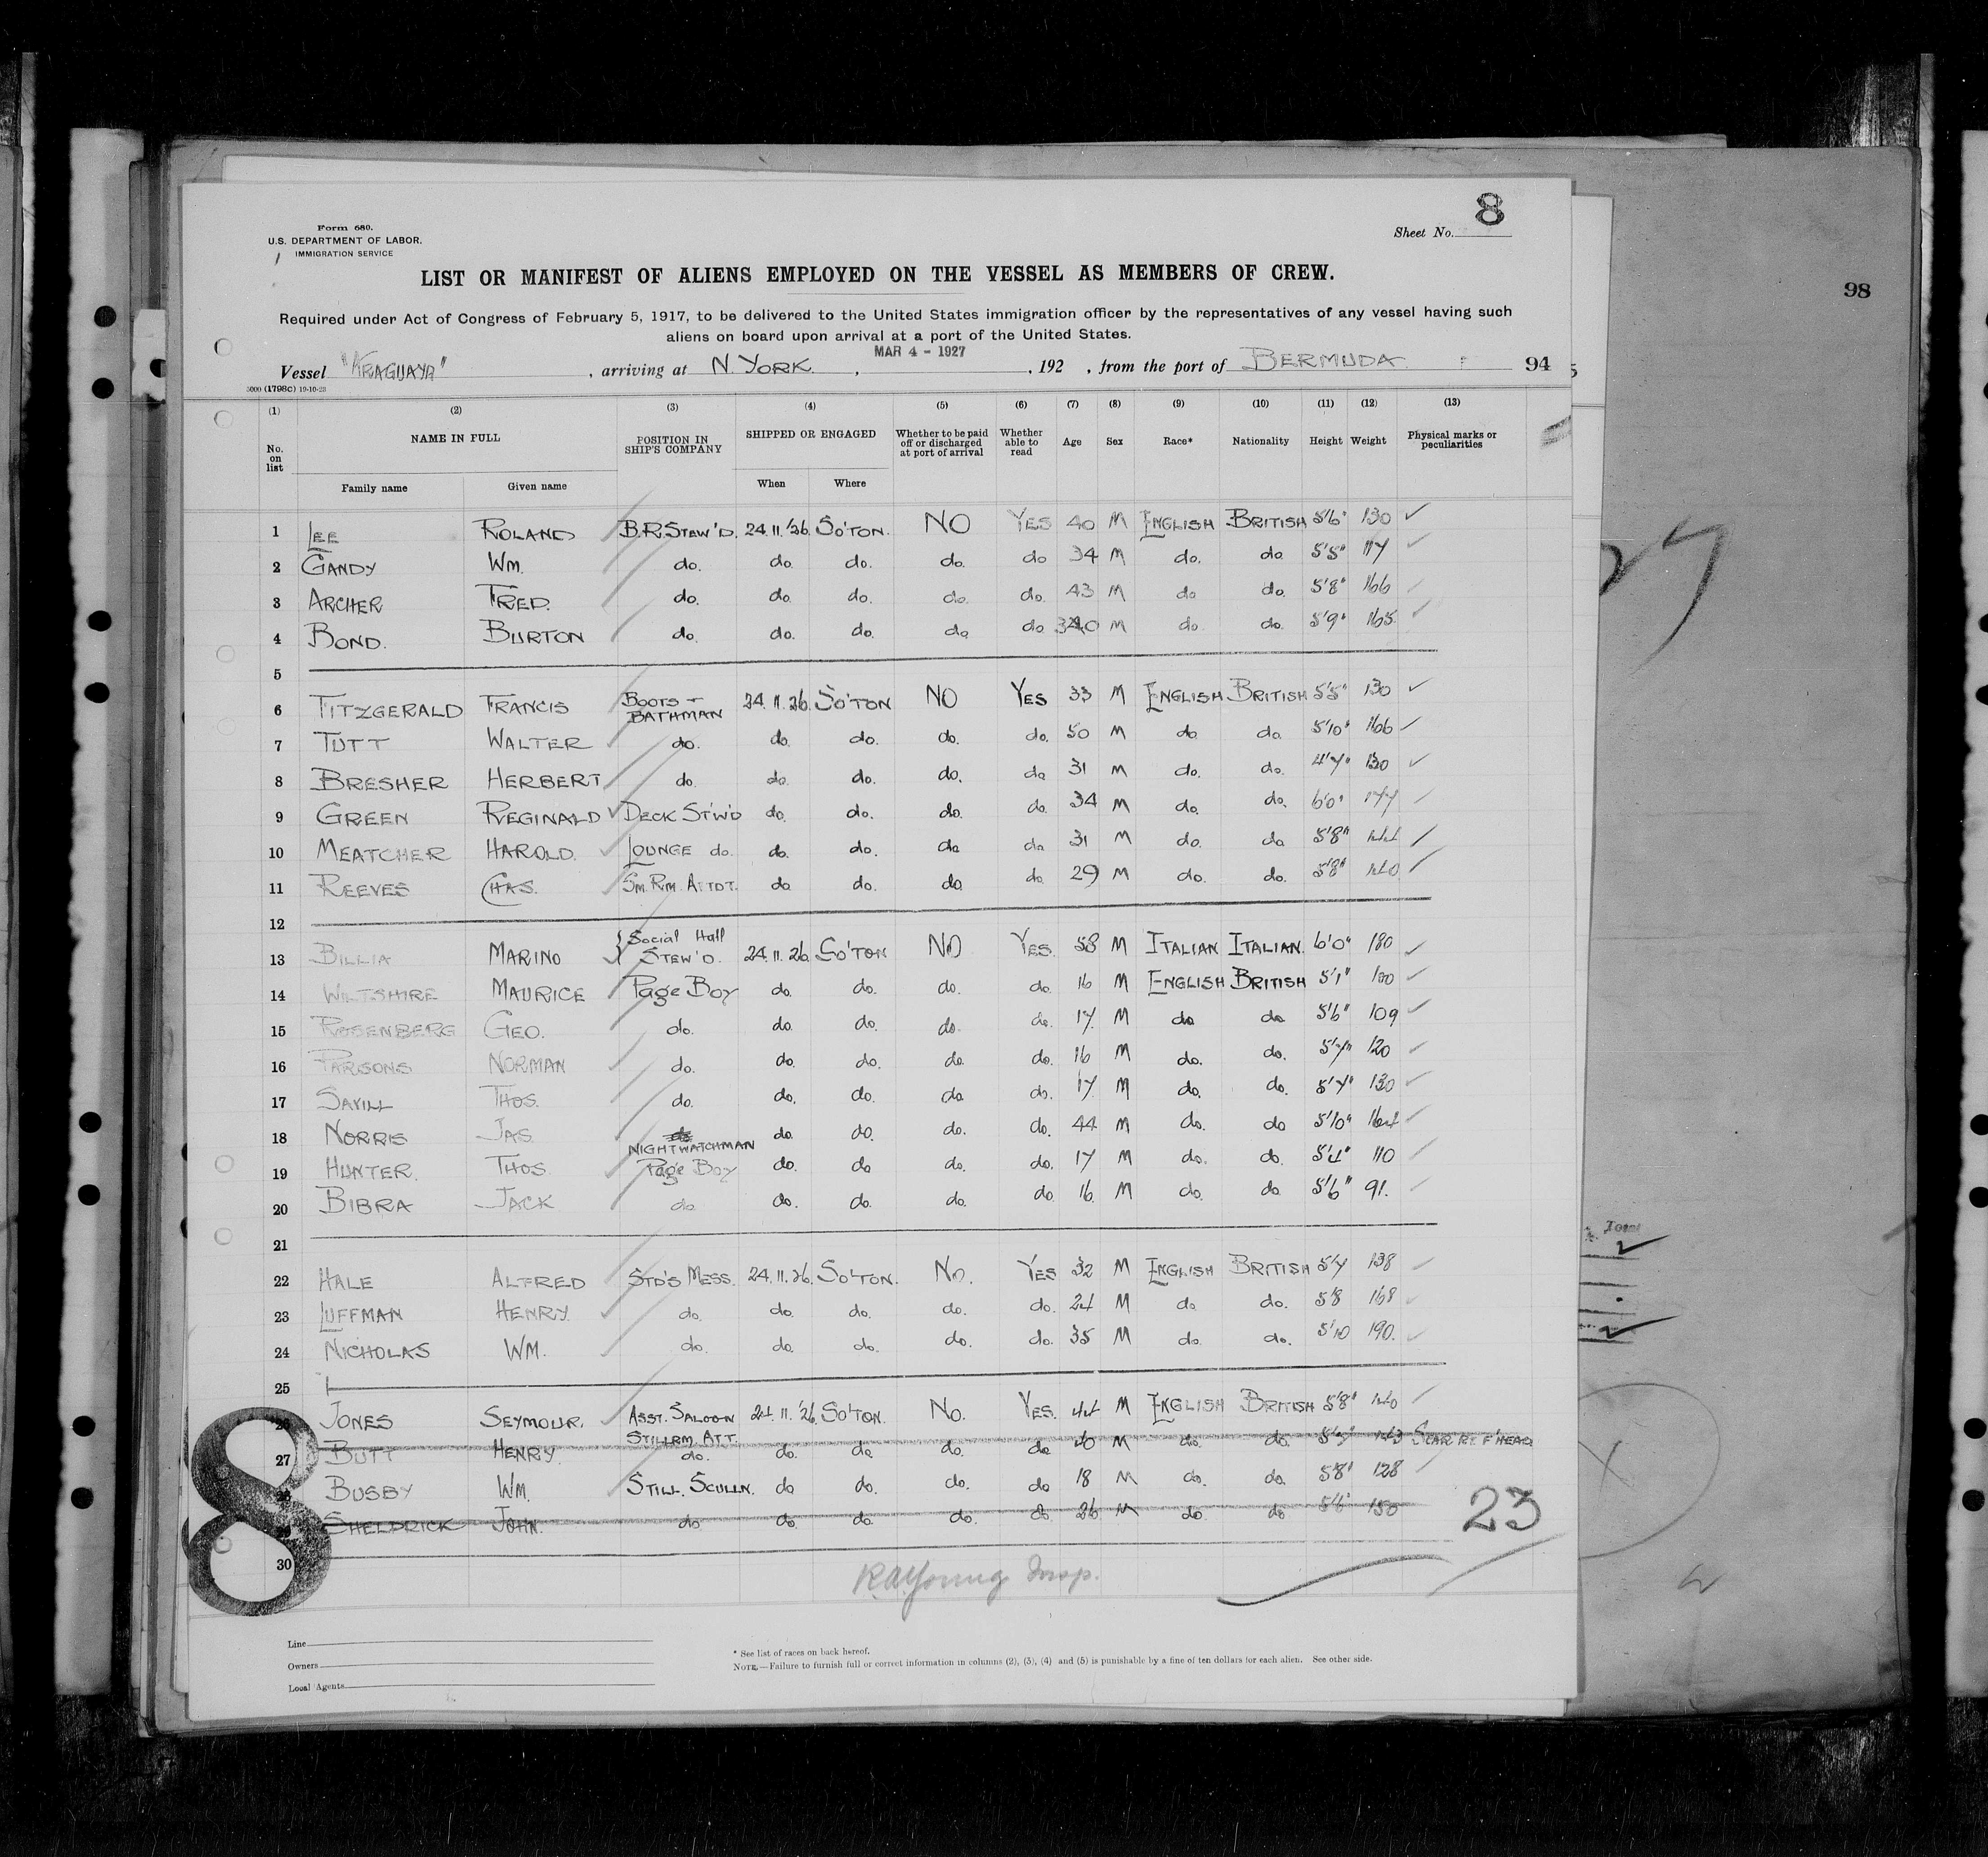 8
Form 680.
U.S. DEPARTMENT OF LABOR,
IMMIGRATION SERVICE
Sheet No.
LIST OR MANIFEST OF ALIENS EMPLOYED ON THE VESSEL AS MEMBERS OF CREW.
98
Required under Act of Congress of February 5, 1917, to be delivered to the United States immigration officer by the representatives of any vessel having such
aliens on board upon arrival at a port of the United States.
MAR 4 - 1927
Vessel "ARAGUAYA", arriving at N. YORK, 192 , from the port of BERMUDA 94
(1) (2) (3) (4) (5) (6) (7) (8) (9) (10) (11) (12) (13)
No. on list NAME IN FULL Family name Given name POSITION IN SHIP'S COMPANY SHIPPED OR ENGAGED When Where Whether to be paid off or discharged at port of arrival Whether able to read Age Sex Race* Nationality Height Weight Physical marks or peculiarities
1 LEE ROLAND B.R. STEW'D. 24.11.'26. SO'TON. NO YES 40 M ENGLISH BRITISH 5'6" 130 ✓
2 GANDY WM. do. do. do. do. do 34 M do. do. 5'5" 117 ✓
3 ARCHER FRED. do. do. do. do. do. 43 M do do. 5'8" 166 ✓
4 BOND. BURTON do. do. do. do do M do do. 5'9" 165. ✓
5
6 FITZGERALD FRANCIS BOOTS + BATHMAN 24.11.26. SO'TON NO YES 33 M ENGLISH BRITISH 5'5" 130 ✓
7 TUTT WALTER do. do. do. do. do. 50 M do do. 5'10" 166 ✓
8 BRESHER HERBERT do. do. do. do. do 31 M do. do. 4'7" 130 ✓
9 GREEN REGINALD DECK ST'W'D do. do. do. do. 34 M do. do. 6'0" 177 ✓
10 MEATCHER HAROLD. LOUNGE do. do. do. do do 31 M do. do 5'8" 144 ✓
11 REEVES CHAS. SM. RM. ATTDT. do do. do. do. 29 M do. do. 5'8" 140 ✓
12
13 BILLIA MARINO SOCIAL HALL STEW'D. 24.11.26. SO'TON NO YES. 58 M ITALIAN ITALIAN. 6'0" 180 ✓
14 WILTSHIRE MAURICE Page Boy do. do. do. do. 16 M ENGLISH BRITISH 5'1" 100 ✓
15 ROSENBERG GEO. do. do. do. do. do. 17. M do do 5'6" 109 ✓
16 PARSONS NORMAN do. do. do. do. do. 16 M do. do. 5'7" 120 ✓
17 SAVILL THOS. do. do. do. do do. 17. M do. do. 5'7" 130 ✓
18 NORRIS JAS. do NIGHTWATCHMAN do. do. do. do. 44 M do. do 5'10" 164 ✓
19 HUNTER. THOS Page Boy do. do do. do. 17 M do. do. 5'4" 110 ✓
20 BIBRA JACK do do. do. do. do. 16. M do. do 5'6" 91. ✓
21
22 HALE ALFRED STD'S MESS. 24.11.26. SO'TON. No. YES 32 M ENGLISH BRITISH 5'7 138 ✓
23 LUFFMAN HENRY. do. do. do. do. do. 24 M do do. 5'8 168 ✓
24 NICHOLAS WM. do. do. do. do. do. 35 M do. do. 5'10 190. ✓
25
26 JONES SEYMOUR. ASST. SALOON STILLRM. ATT. 24.11.'26. SO'TON. No. YES. 44 M ENGLISH BRITISH 5'8" 140 ✓
27 BUTT HENRY. do. do. do. do. do 40 M do. do. 5'7 143 SCAR RT F'HEAD
28 BUSBY WM. STILL. SCULLN. do do. do. do 18 M do. do. 5'8" 128 ✓
29 SHELDRICK JOHN. do do do. do. do. 26 M do. do 5'6" 150
23
30
8
R A Young Insp.
Line
Owners
Local Agents
* See list of races on back hereof.
NOTE.—Failure to furnish full or correct information in columns (2), (3), (4) and (5) is punishable by a fine of ten dollars for each alien. See other side.